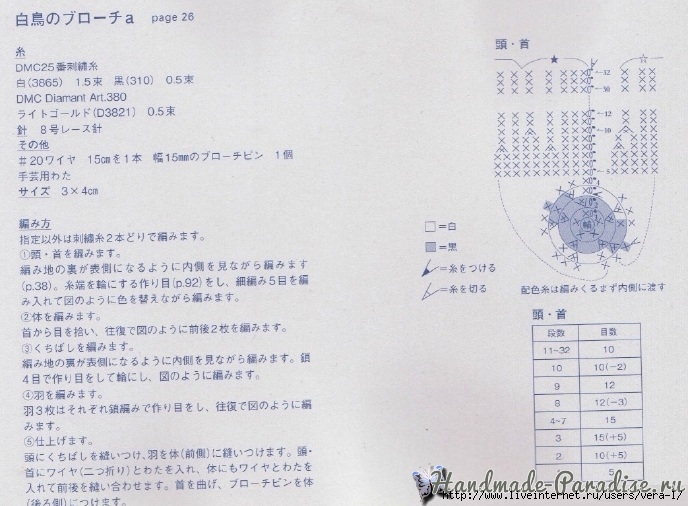 白鳥のブローチa page 26
糸
DMC25番刺繍糸
白(3865) 1.5束 黒(310) 0.5束
DMC Diamant Art.380
ライトゴールド(D3821) 0.5束
針 8号レース針
その他
#20ワイヤ 15cmを1本 幅15mmのブローチピン 1個
手芸用わた
サイズ 3×4cm
編み方
指定以外は刺繍糸2本どりで編みます。
①頭・首を編みます。
編み地の裏が表側になるように内側を見ながら編みます
(p.38)。糸端を輪にする作り目(p.92)をし、細編み5目を編
み入れて図のように色を替えながら編みます。
②体を編みます。
首から目を拾い、往復で図のように前後2枚を編みます。
③くちばしを編みます。
編み地の裏が表側になるように内側を見ながら編みます。鎖
4目で作り目をして輪にし、図のように編みます。
④羽を編みます。
羽3枚はそれぞれ鎖編みで作り目をし、往復で図のように編
みます。
⑤仕上げます。
頭にくちばしを縫いつけ、羽を体(前側)に縫いつけます。頭・
首にワイヤ(二つ折り)とわたを入れ、体にもワイヤとわたを
入れて前後を縫い合わせます。首を曲げ、ブローチピンを体
(後ろ側)につけます。
頭・首
★ ☆
32
30
12
10
5
輪
=白
=黒
=糸をつける
=糸を切る
配色糸は編みくるまず内側に渡す
頭・首
段数 目数
11~32 10
10 10(-2)
9 12
8 12(-3)
4~7 15
3 15(+5)
2 10(+5)
5
Handmade-Paradise.ru
http://www.liveinternet.ru/users/vera-l/